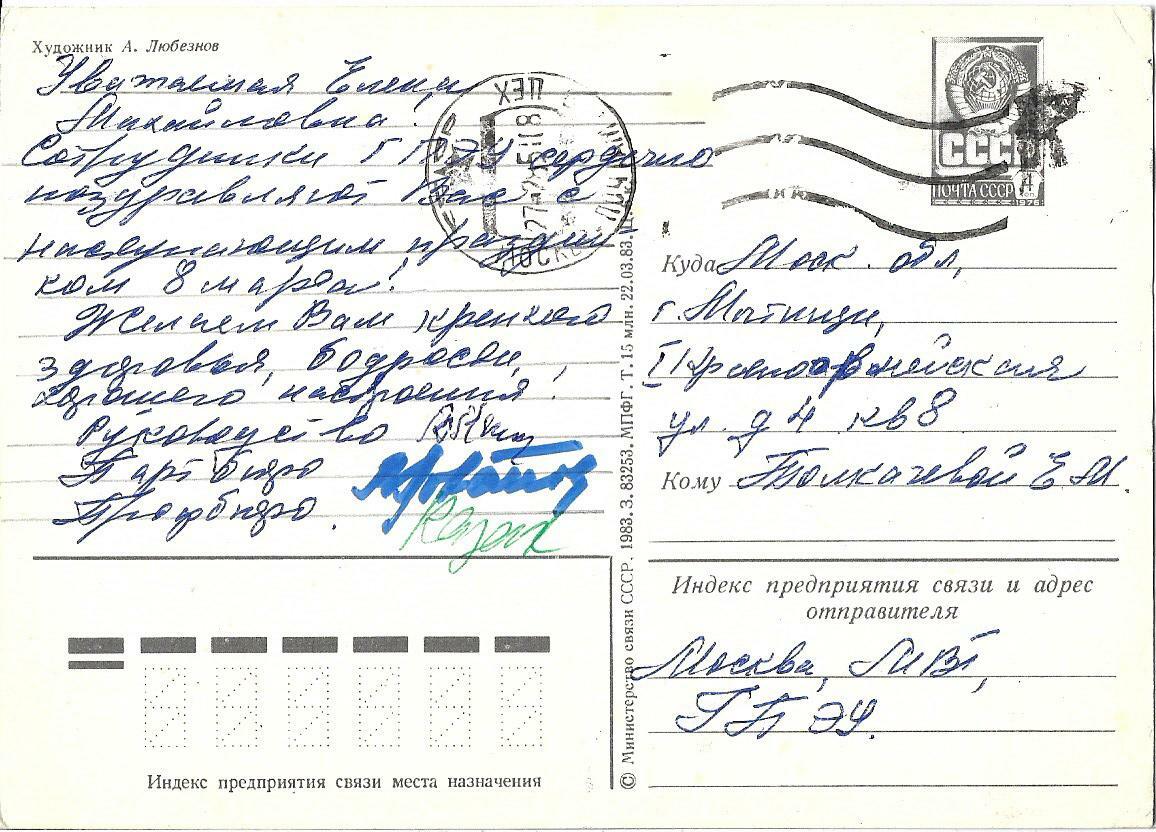 Художник А. Любезнов
Уважаемая Елена
Михайловна!
Сотрудники ГПЭУ сердечно
поздравляют Вас с
наступающим праздни-
ком 8 марта!
Желаем Вам крепкого
здоровья, бодрости,
хорошего настроения!
Руководство
Партбюро
Профбюро.
МОСКВА
СССР
ПОЧТА СССР
1976
Куда Моск. обл,
г. Мытищи,
I Красноармейская
ул. д 4 кв 8
Кому Толкачевой Е М.
Индекс предприятия связи и адрес
отправителя
Москва, МВТ,
ГПЭУ.
Индекс предприятия связи места назначения
© Министерство связи СССР. 1983. З. 83253. МПФГ. Т. 15 млн. 22.03.83. Ц.